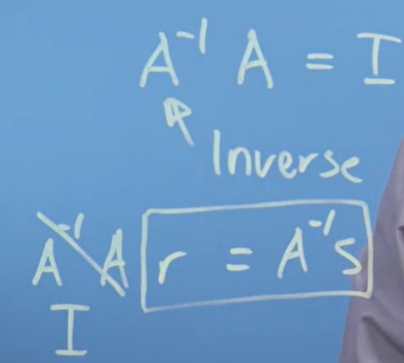 A⁻¹ A = I
Inverse
A⁻¹ A r = A⁻¹ s
I